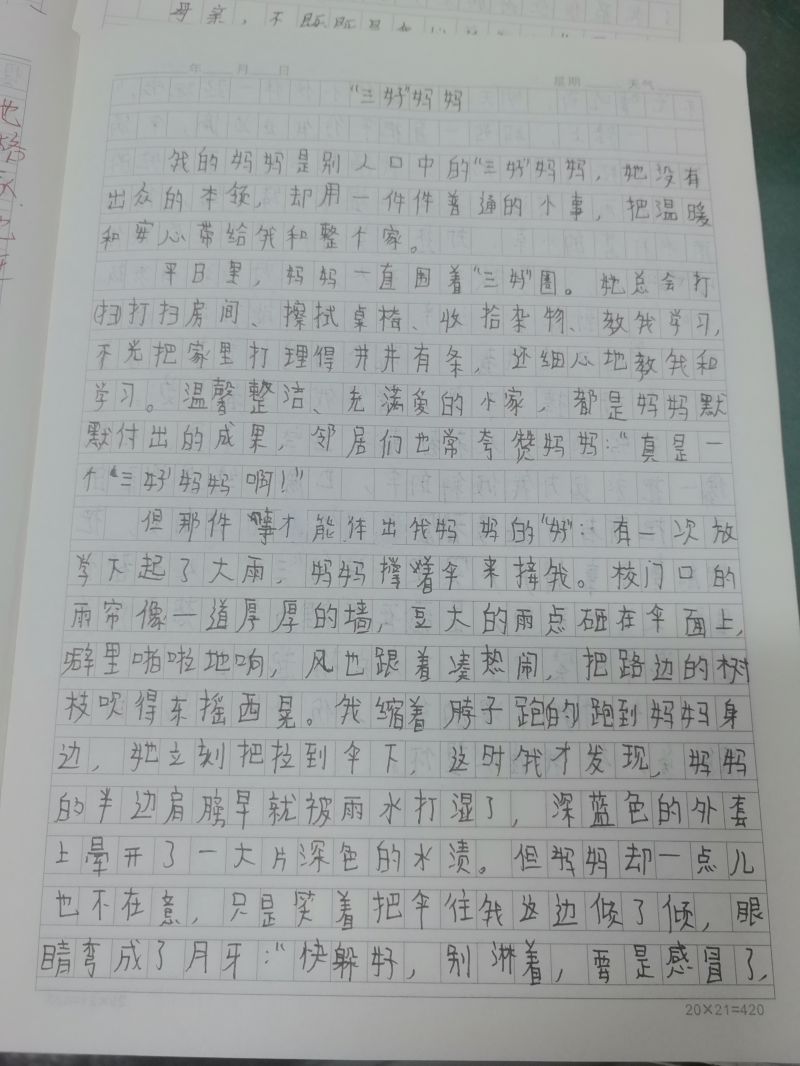 母亲，不
年 月 日
星期 天气
“三好”妈妈
我的妈妈是别人口中的“三好”妈妈，她没有
出众的本领，却用一件件普通的小事，把温暖
和安心带给我和整个家。
平日里，妈妈一直围着“三好”圈。她总会打
扫打扫房间、擦拭桌椅、收拾杂物、教我学习，
不光把家里打理得井井有条，还细心地教我和
学习。温馨整洁、充满爱的小家，都是妈妈默
默付出的成果，邻居们也常夸赞妈妈：“真是一
个“三好”妈妈啊！”
但那件事才能体出我妈妈的“好”：有一次放
学下起了大雨，妈妈撑着伞来接我。校门口的
雨帘像一道厚厚的墙，豆大的雨点砸在伞面上，
噼里啪啦地响，风也跟着凑热闹，把路边的树
枝吹得东摇西晃。我缩着脖子跑的跑到妈妈身
边，她立刻把拉到伞下，这时我才发现，妈妈
的半边肩膀早就被雨水打湿了，深蓝色的外套
上晕开了一大片深色的水渍。但妈妈却一点儿
也不在意，只是笑着把伞往我这边倾了倾，眼
睛弯成了月牙：“快躲好，别淋着，要是感冒了，
20×21=420